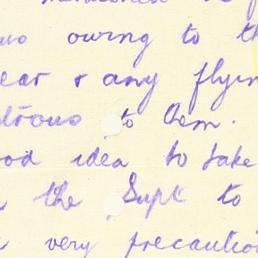 owing to th
ear & any flyin
strous to them.
ood idea to take
the Supt to
very precaution